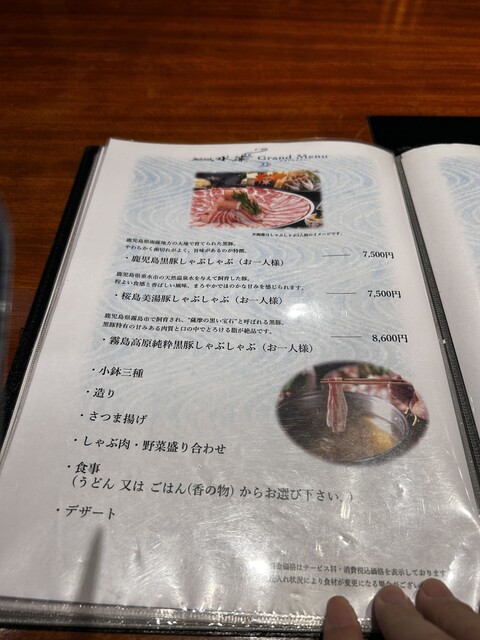 Grand Menu
※画像はしゃぶしゃぶ2人前のイメージです。
鹿児島県南薩地方の大地で育てられた黒豚。
やわらかく歯切れがよく、旨味があるのが特徴。
・鹿児島黒豚しゃぶしゃぶ（お一人様） 7,500円
鹿児島県垂水市の天然温泉水を与えて飼育した豚。
程よい食感と香ばしい風味、まろやかでほのかな甘みを感じられます。
・桜島美湯豚しゃぶしゃぶ（お一人様） 7,500円
鹿児島県霧島市で飼育され、"薩摩の黒い宝石"と呼ばれる黒豚。
黒豚特有の甘みある肉質と口の中でとろける脂が絶品です。
・霧島高原純粋黒豚しゃぶしゃぶ（お一人様） 8,600円
・小鉢三種
・造り
・さつま揚げ
・しゃぶ肉・野菜盛り合わせ
・食事
（うどん 又は ごはん(香の物) からお選び下さい。）
・デザート
金価格はサービス料・消費税込価格を表示しております
入れ状況により食材が変更になる場合がござい